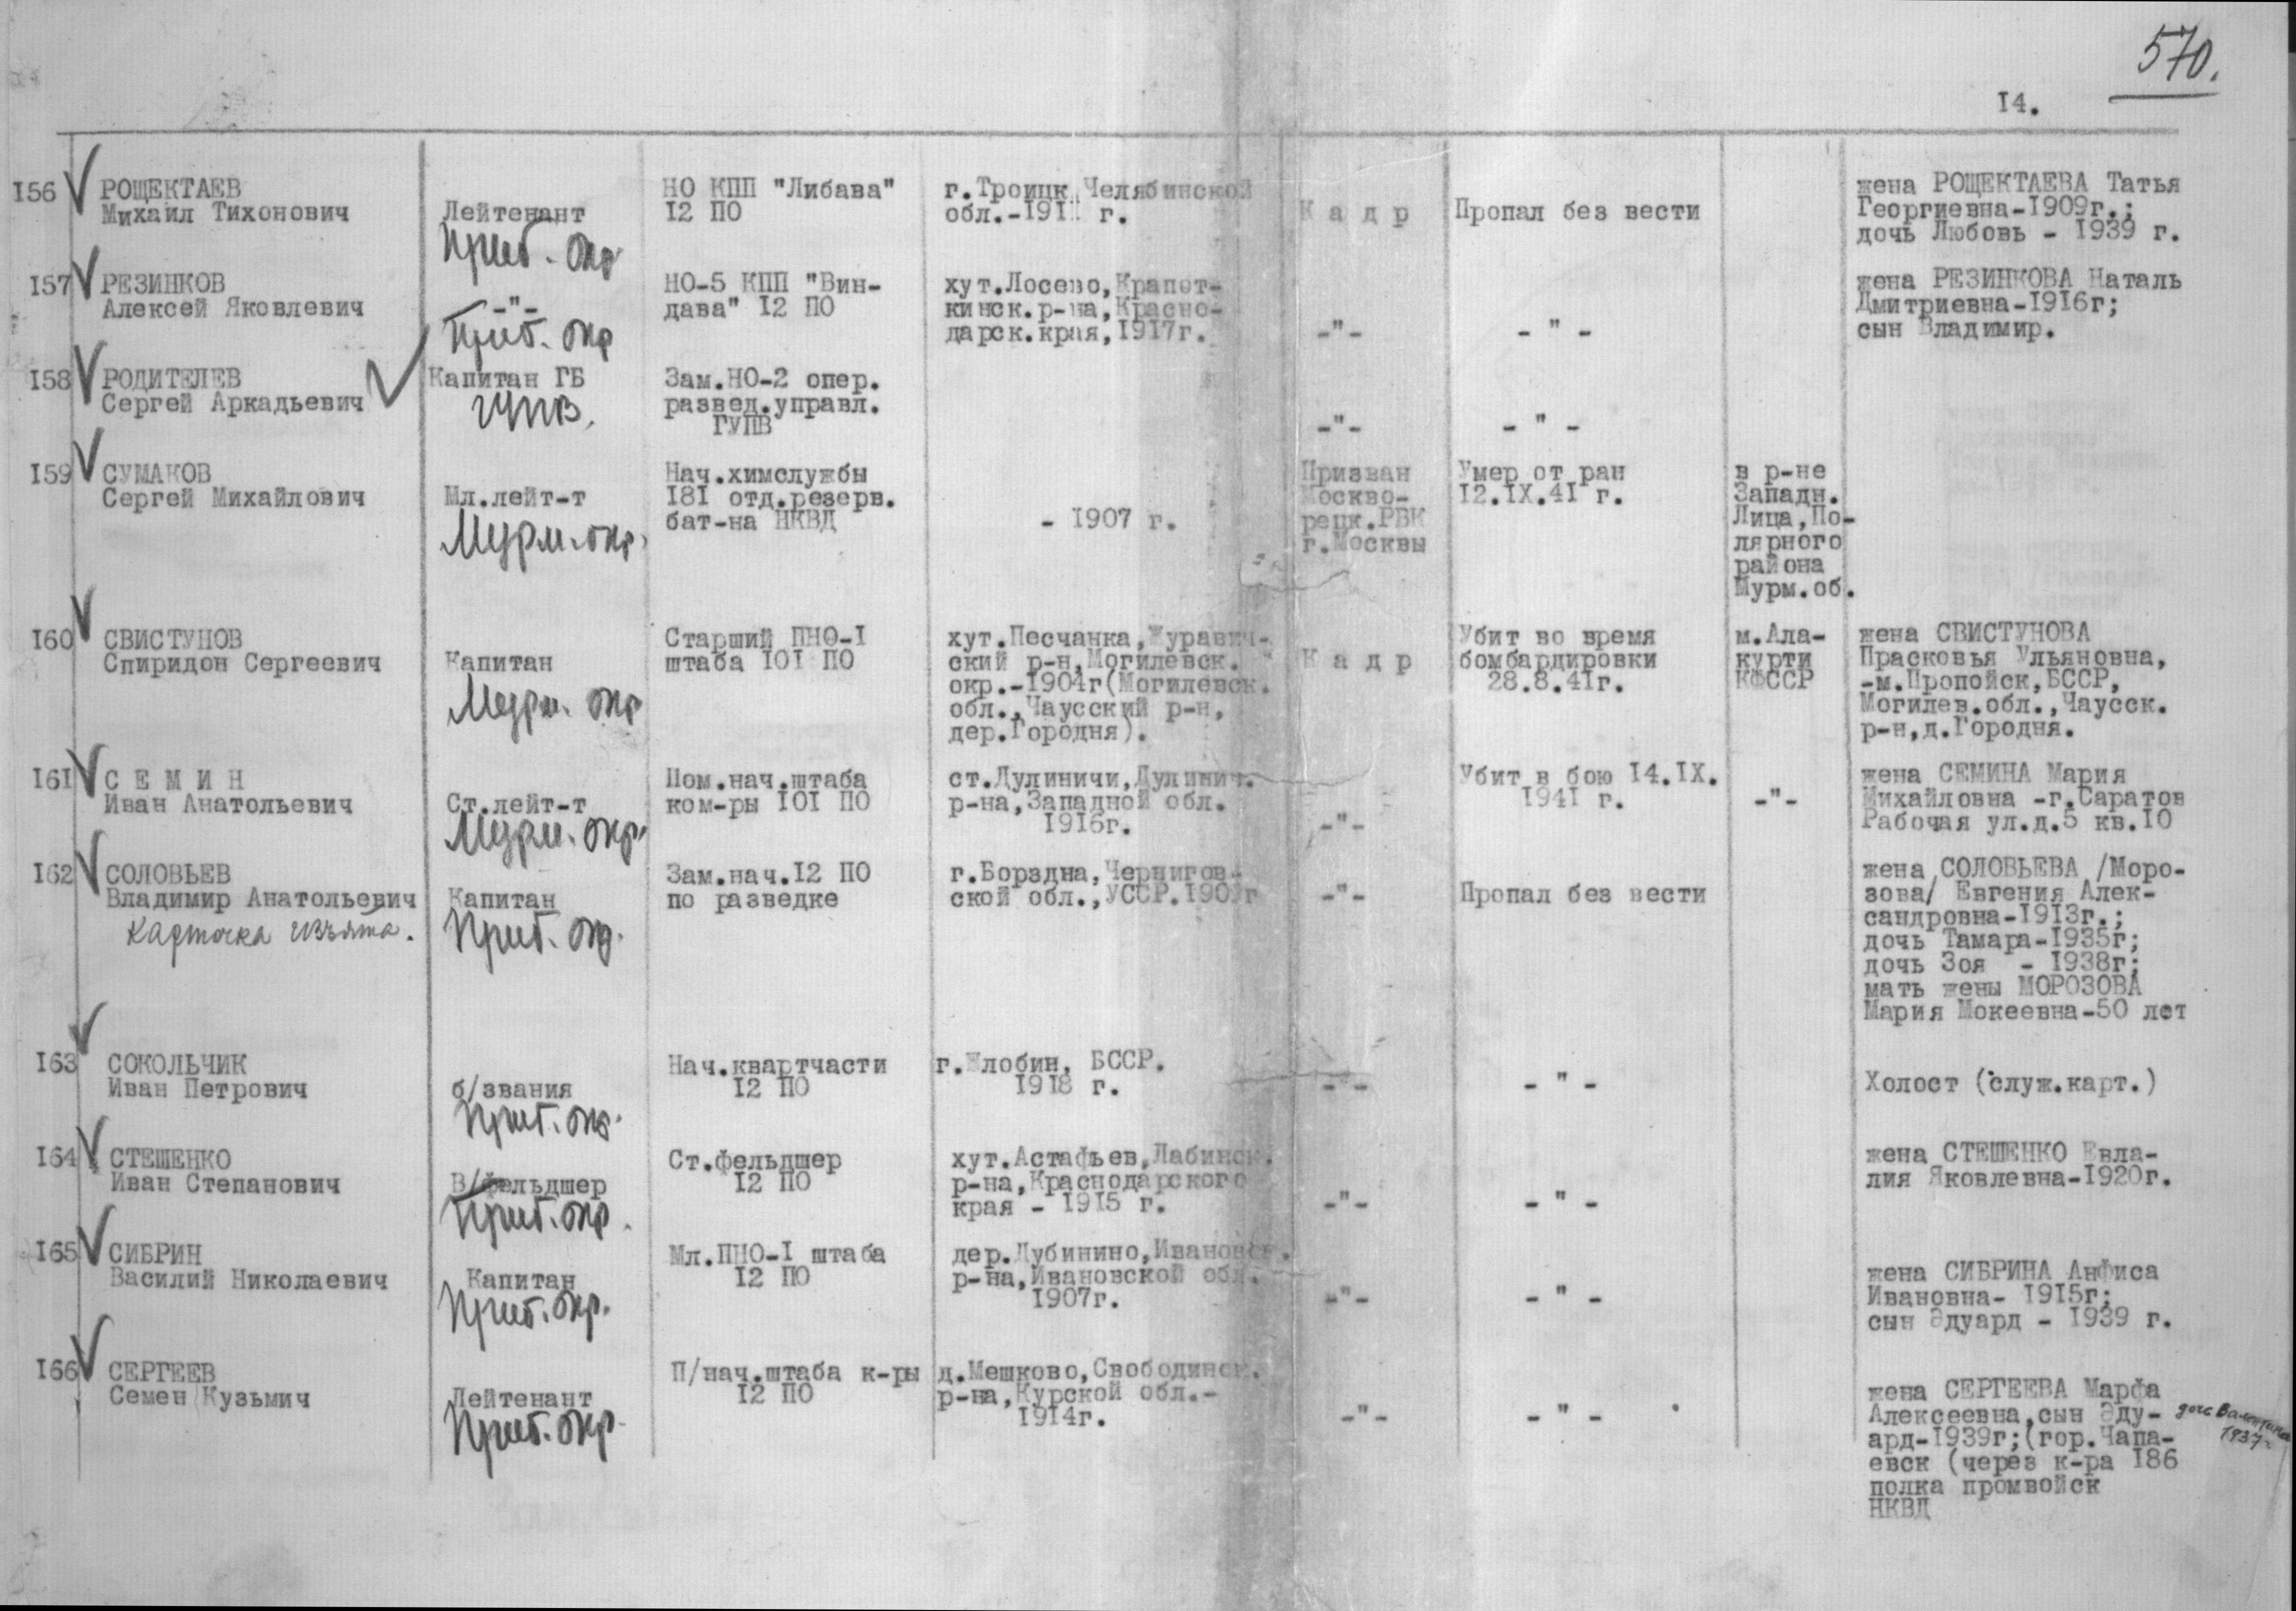 570.
14.
156 РОЩЕКТАЕВ
Михаил Тихонович
Лейтенант
Приб. окр
НО КПП "Либава"
12 ПО
г.Троицк Челябинской
обл.-191 г.
К а д р
Пропал без вести
жена РОЩЕКТАЕВА Татья
Георгиевна-1909г.;
дочь Любовь - 1939 г.
157 РЕЗИНКОВ
Алексей Яковлевич
-"-
Приб. окр
НО-5 КПП "Вин-
дава" 12 ПО
хут.Лосево,Крапот-
кинск.р-на,Красно-
дарск.края,1917г.
-"-
- " -
жена РЕЗИНКОВА Наталь
Дмитриевна-1916г;
сын Владимир.
158 РОДИТЕЛЕВ
Сергей Аркадьевич
Капитан ГБ
ГУПВ.
Зам.НО-2 опер.
развед.управл.
ГУПВ
-"-
- " -
159 СУМАКОВ
Сергей Михайлович
Мл.лейт-т
Мурм. окр.
Нач.химслужбы
181 отд.резерв.
бат-на НКВД
- 1907 г.
Призван
Москво-
рецк.РВК
г.Москвы
Умер от ран
12.IX.41 г.
в р-не
Западн.
Лица,По-
лярного
района
Мурм.об.
160 СВИСТУНОВ
Спиридон Сергеевич
Капитан
Мурм. окр
Старший ПНО-1
штаба 101 ПО
хут.Песчанка,Журавич-
ский р-н,Могилевск.
окр.-1904г(Могилевск.
обл.,Чаусский р-н,
дер.Городня).
К а д р
Убит во время
бомбардировки
28.8.41г.
м.Ала-
курти
КФССР
жена СВИСТУНОВА
Прасковья Ульяновна,
-м.Пропойск,БССР,
Могилев.обл.,Чаусск.
р-н,д.Городня.
161 С Е М И Н
Иван Анатольевич
Ст.лейт-т
Мурм. окр.
Пом.нач.штаба
ком-ры 101 ПО
ст.Дулиничи,Дулинич.
р-на,Западной обл.
1916г.
-"-
Убит в бою 14.IX.
1941 г.
-"-
жена СЕМИНА Мария
Михайловна -г.Саратов
Рабочая ул.д.5 кв.10
162 СОЛОВЬЕВ
Владимир Анатольевич
Карточка изъята.
Капитан
Приб. окр.
Зам.нач.12 ПО
по разведке
г.Борздна,Чернигов-
ской обл.,УССР.190 г
-"-
Пропал без вести
жена СОЛОВЬЕВА /Моро-
зова/ Евгения Алек-
сандровна-1913г.;
дочь Тамара-1935г;
дочь Зоя - 1938г;
мать жены МОРОЗОВА
Мария Мокеевна-50 лет
163 СОКОЛЬЧИК
Иван Петрович
б/звания
Приб. окр.
Нач.квартчасти
12 ПО
г.Жлобин, БССР.
1918 г.
-"-
- " -
Холост (служ.карт.)
164 СТЕШЕНКО
Иван Степанович
В/фельдшер
Приб. окр.
Ст.фельдшер
12 ПО
хут.Астафьев,Лабинск.
р-на,Краснодарского
края - 1915 г.
-"-
- " -
жена СТЕШЕНКО Евла-
лия Яковлевна-1920г.
165 СИБРИН
Василий Николаевич
Капитан
Приб. окр.
Мл.ПНО-1 штаба
12 ПО
дер.Дубинино,Ивановск.
р-на,Ивановской обл.
1907г.
-"-
- " -
жена СИБРИНА Анфиса
Ивановна- 1915г;
сын Эдуард - 1939 г.
166 СЕРГЕЕВ
Семен Кузьмич
Лейтенант
Приб. окр.
П/нач.штаба к-ры
12 ПО
д.Мешково,Свободинск.
р-на,Курской обл.-
1914г.
-"-
- " -
жена СЕРГЕЕВА Марфа
Алексеевна,сын Эду-
ард-1939г;(гор.Чапа-
евск (через к-ра 186
полка промвойск
НКВД
дочь Валентина
1937г